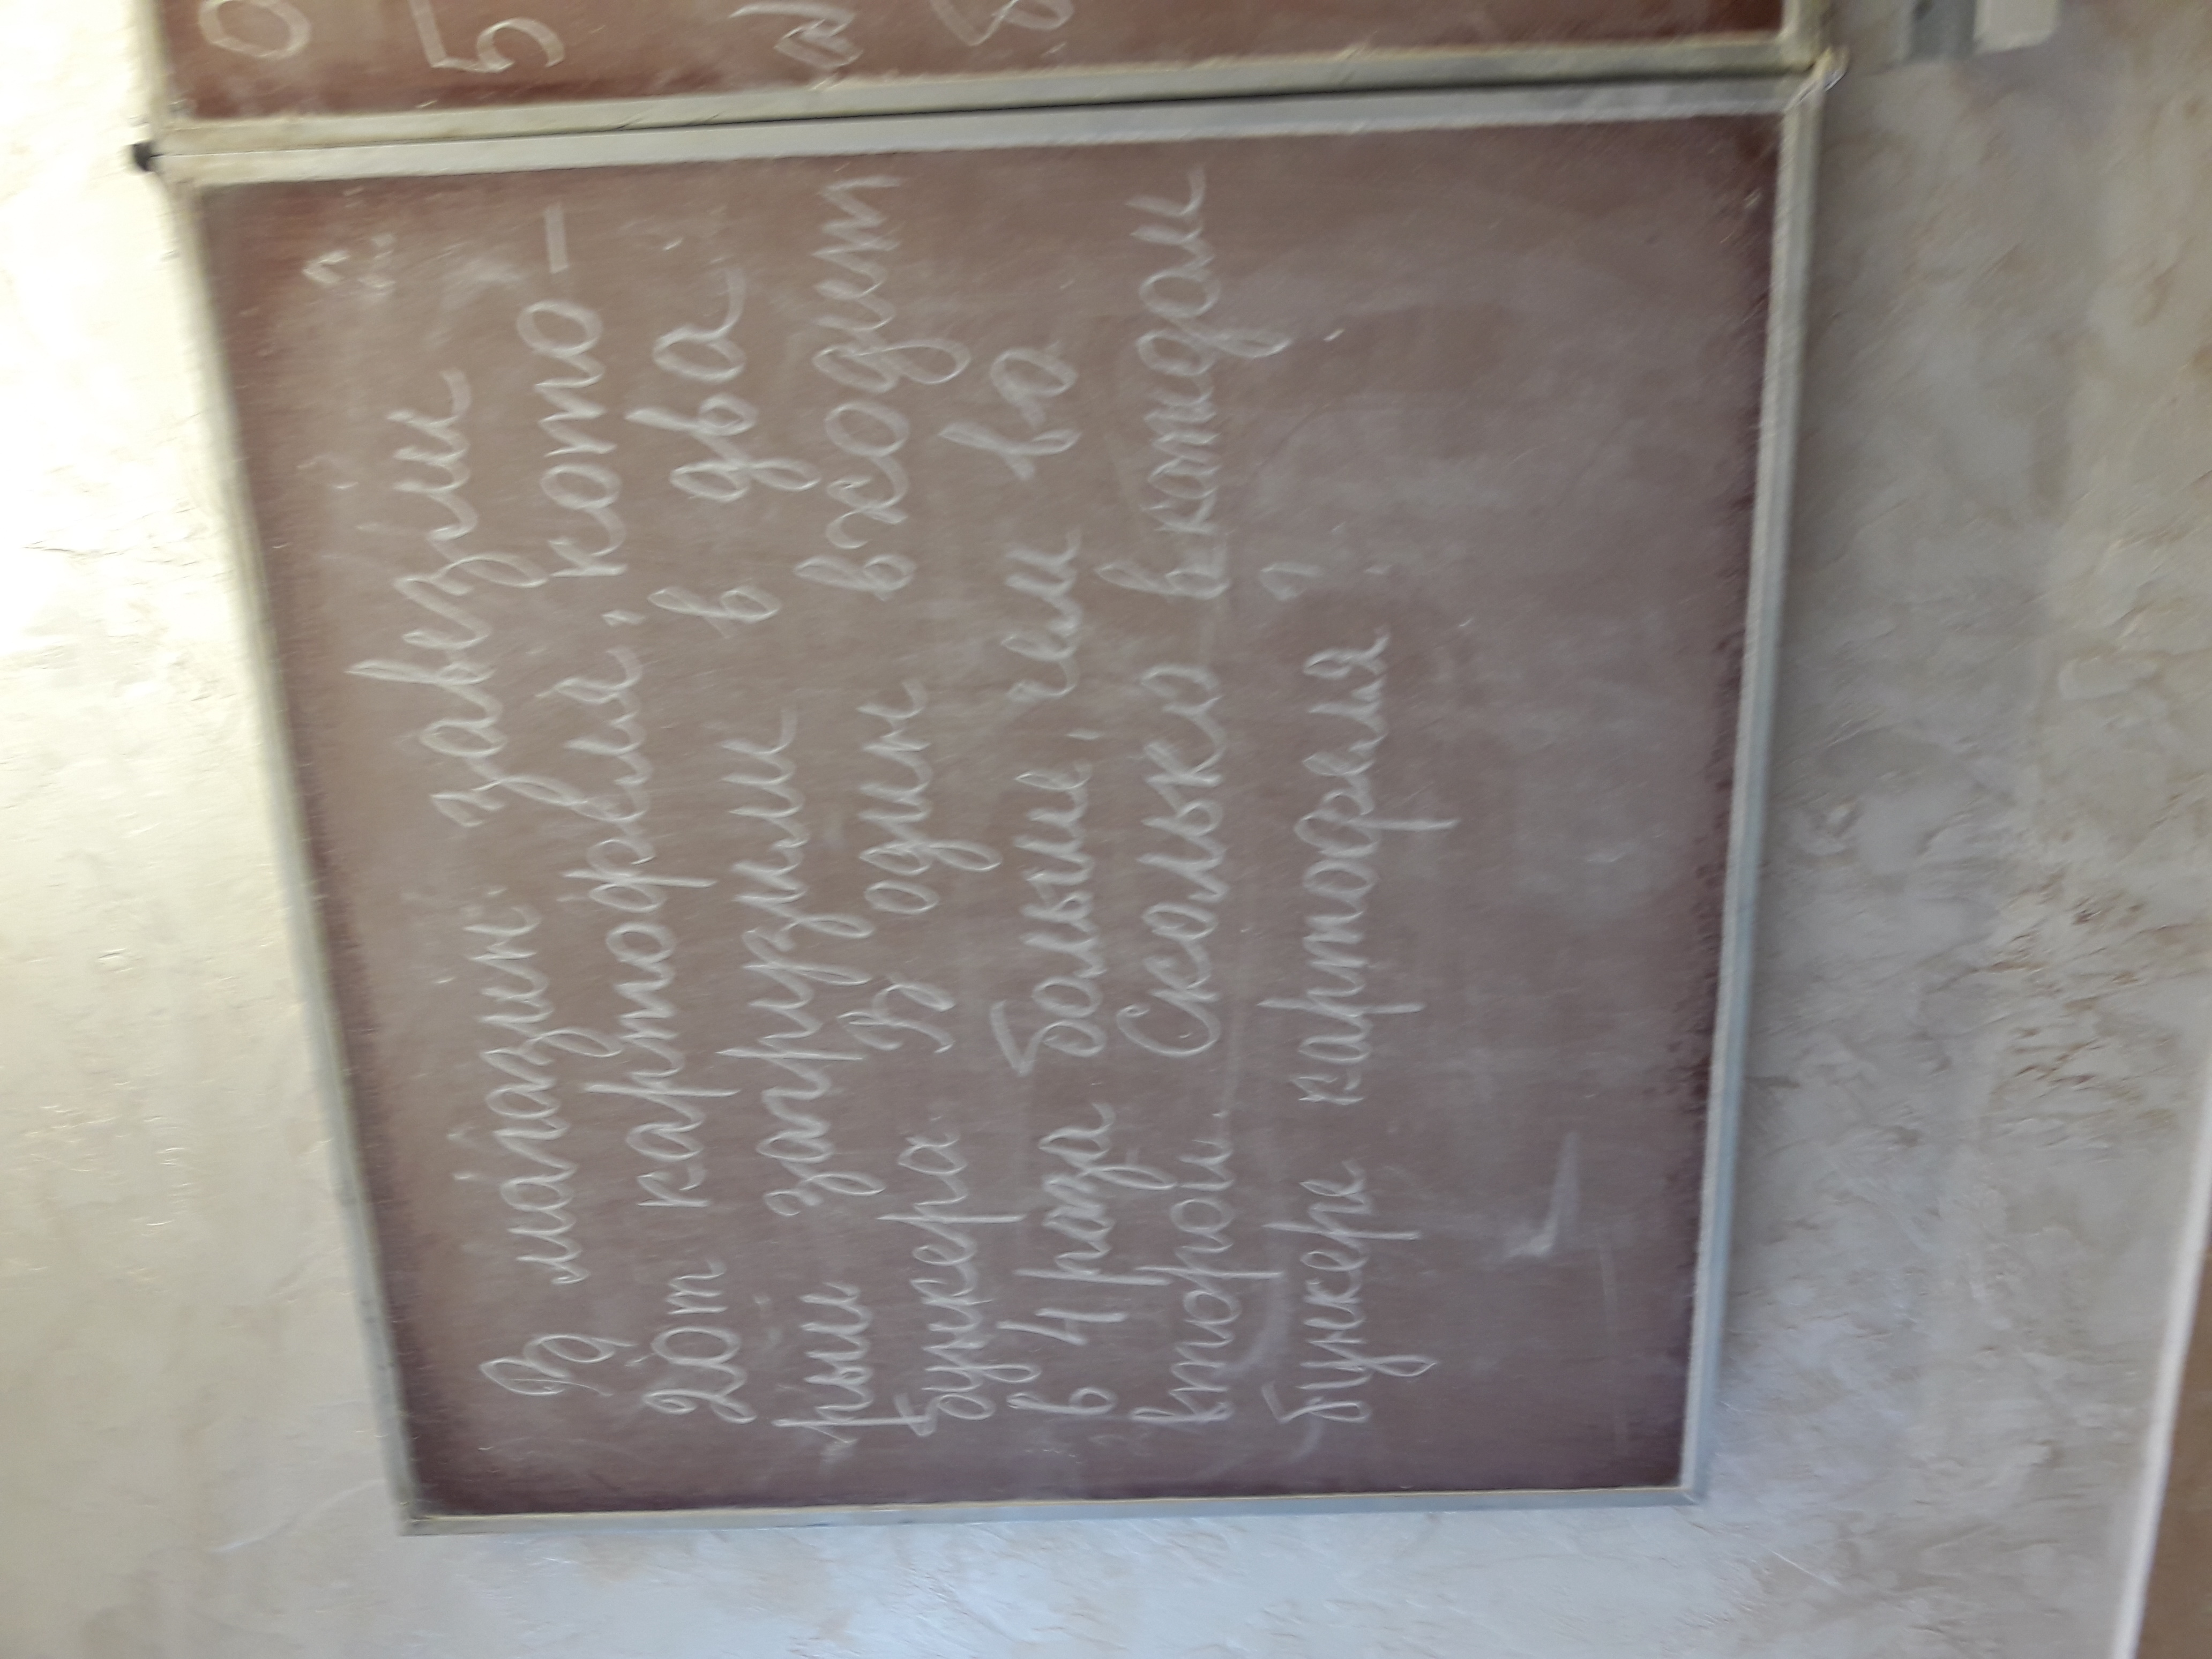 В магазин завезли
20т картофеля, кото-
рый загрузили в два
бункера В один входит
в 4 раза больше, чем во
второй. Сколько в каждом
бункере картофеля?
0
5